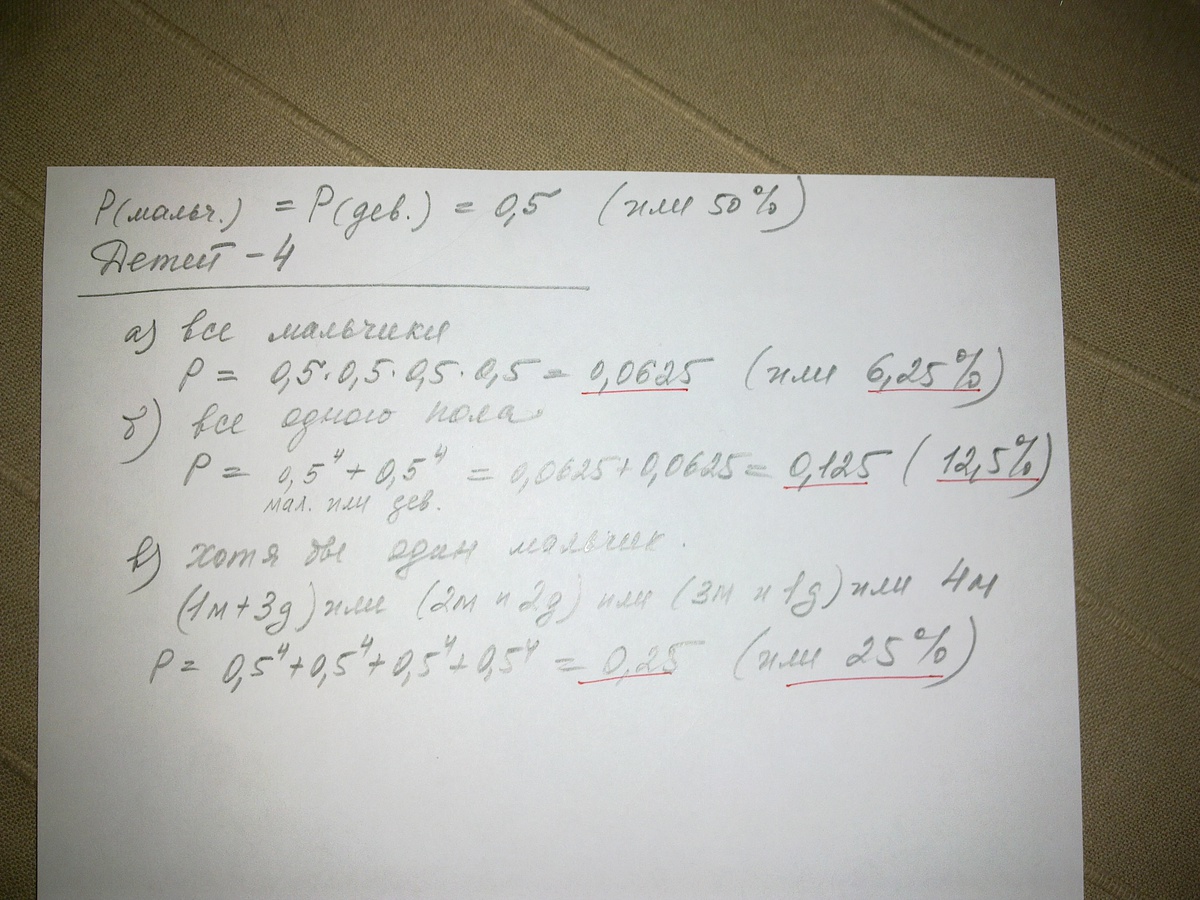 P(мальч.) = P(дев.) = 0,5 (или 50%)
Детей - 4
а) все мальчики
P = 0,5·0,5·0,5·0,5 = 0,0625 (или 6,25%)
б) все одного пола
P = 0,5⁴ + 0,5⁴ = 0,0625+0,0625 = 0,125 (12,5%)
мал. или дев.
в) хотя бы один мальчик.
(1м+3д) или (2м и 2д) или (3м и 1д) или 4м
P = 0,5⁴+0,5⁴+0,5⁴+0,5⁴ = 0,25 (или 25%)